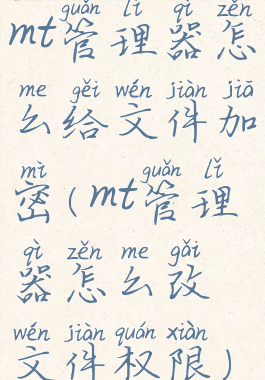 guǎn lǐ qì zěn
mt管理器怎
me gěi wén jiàn jiā
么给文件加
mì guǎn lǐ
密(mt管理
qì zěn me gǎi
器怎么改
wén jiàn quán xiàn
文件权限)